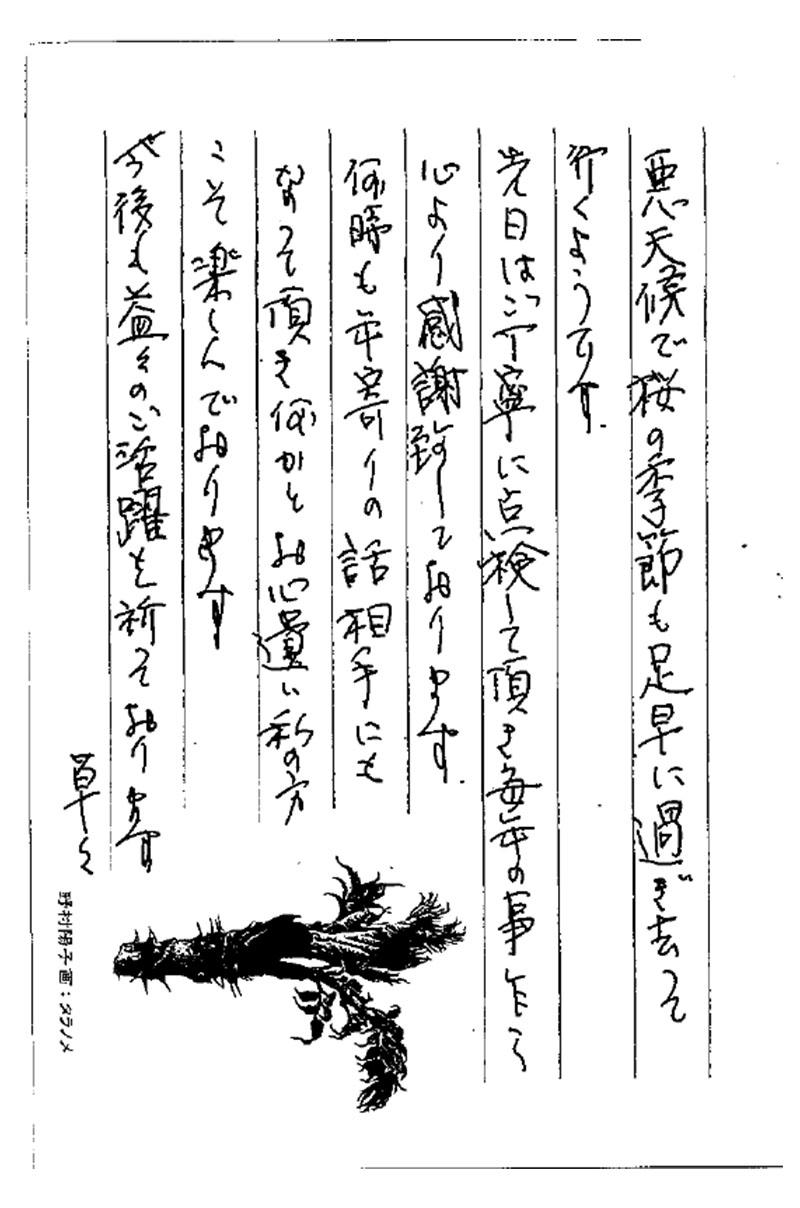 悪天候で桜の季節も足早に過ぎ去って
行くようです.
先日はご丁寧に点検して頂き毎年の事乍ら
心より感謝致しております.
何時も年寄りの話相手にも
なって頂き何かとお心遣い私の方
こそ楽しんでおります
今後も益々のご活躍を祈っております
草々
野村陽子画:タラノメ